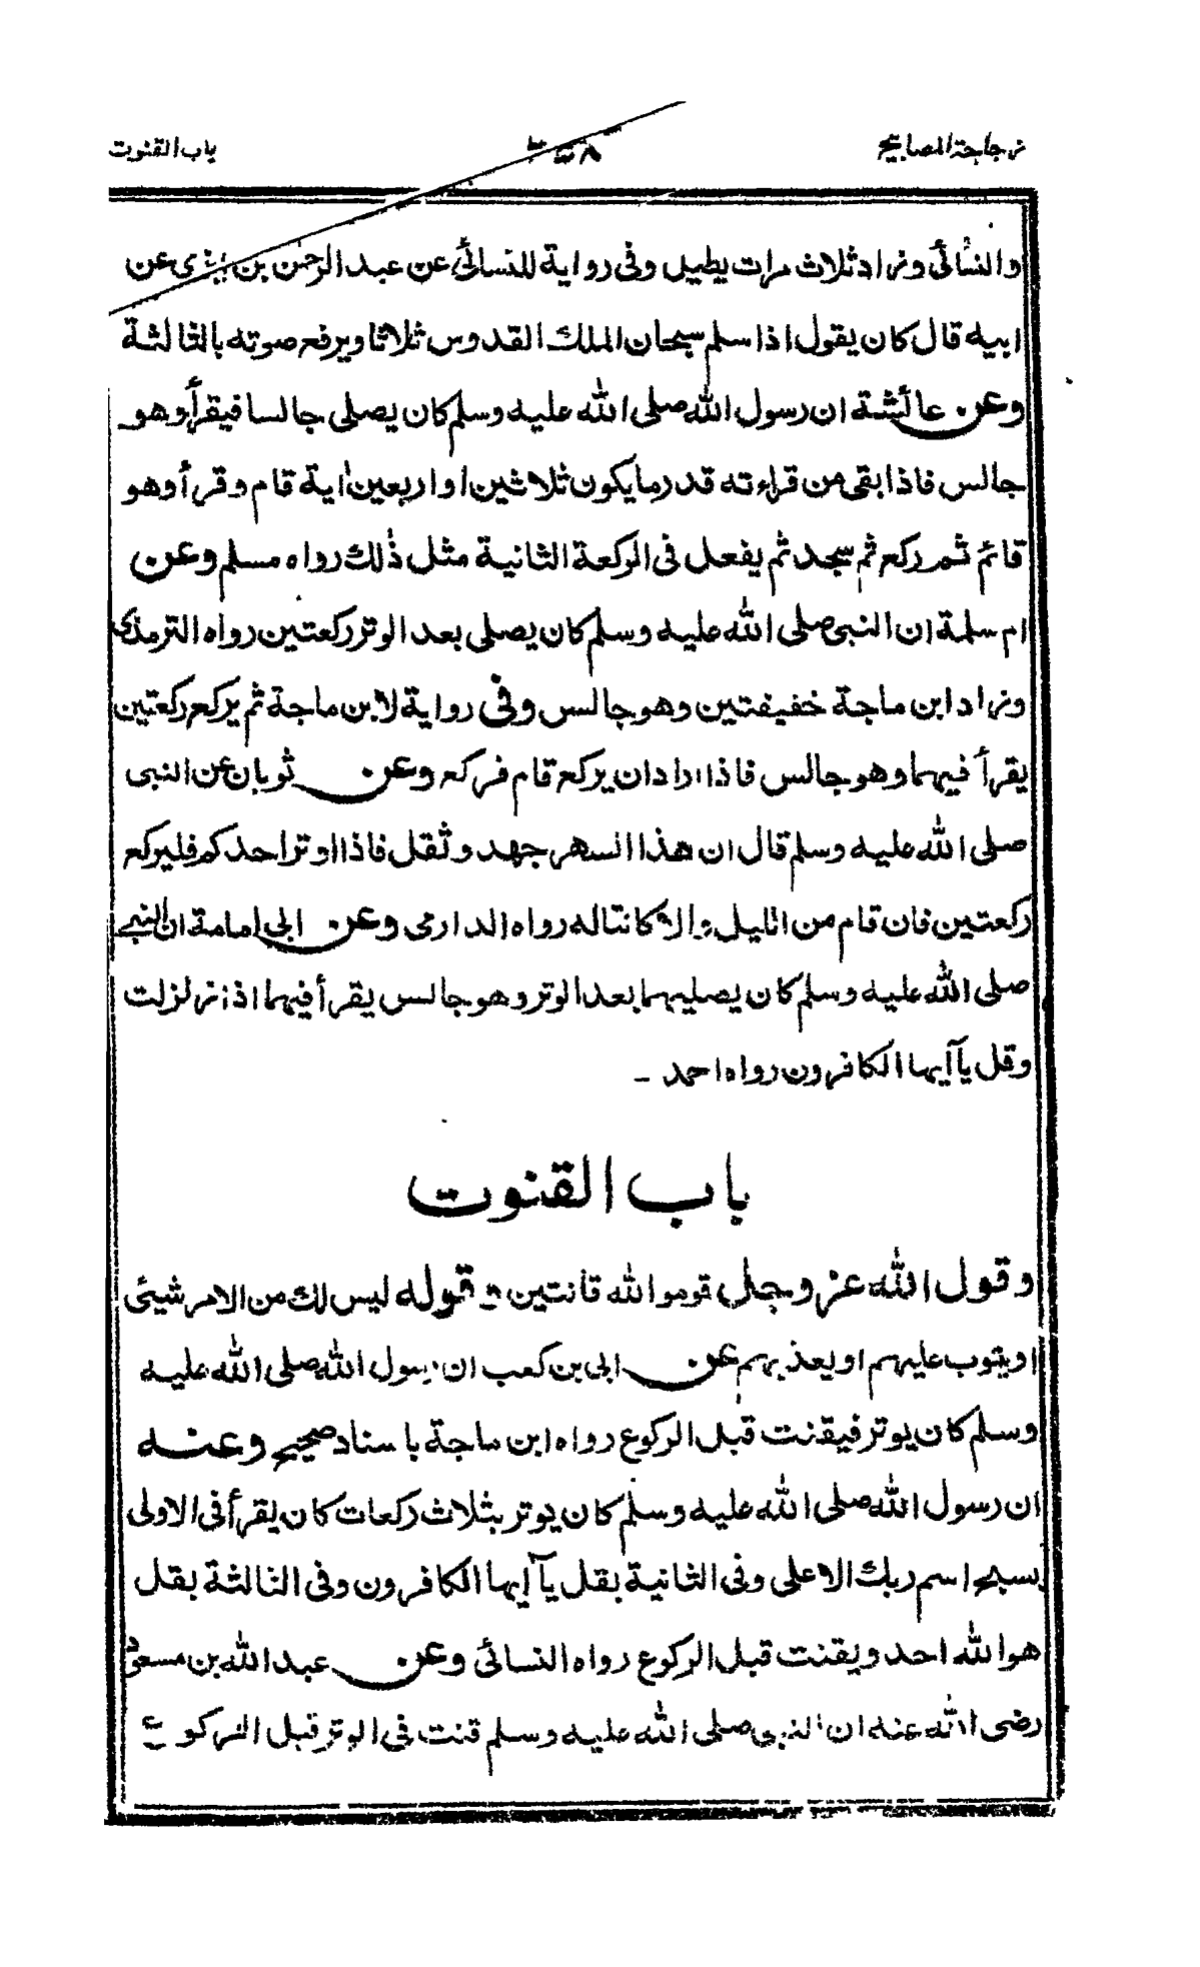 زجاجة المصابيح
باب القنوت
والنسائى وزاد ثلاث مرات يطيل وفى رواية للنسائى عن عبد الرحمٰن بن ابزى عن
ابيه قال كان يقول اذا سلم سبحان الملك القدوس ثلاثا ويرفع صوته بالثالثة
وعن عائشة ان رسول الله صلى الله عليه وسلم كان يصلى جالسا فيقرأ وهو
جالس فاذا بقى من قراءته قدر ما يكون ثلاثين او اربعين اٰية قام وقرأ وهو
قائم ثم ركع ثم سجد ثم يفعل فى الركعة الثانية مثل ذٰلك رواه مسلم وعن
ام سلمة ان النبى صلى الله عليه وسلم كان يصلى بعد الوتر ركعتين رواه الترمذى
وزاد ابن ماجة خفيفتين وهو جالس وفى رواية لابن ماجة ثم يركع ركعتين
يقرأ فيهما وهو جالس فاذا اراد ان يركع قام فركع وعن ثوبان عن النبى
صلى الله عليه وسلم قال ان هذا السهر جهد وثقل فاذا اوتر احدكم فليركع
ركعتين فان قام من الليل والا كانتا له رواه الدارمى وعن ابى امامة ان النبى
صلى الله عليه وسلم كان يصليهما بعد الوتر وهو جالس يقرأ فيهما اذا زلزلت
وقل يآ ايها الكافرون رواه احمد ـ
باب القنوت
وقول الله عز وجل قوموا لله قانتين و قوله ليس لك من الامر شيئى
او يتوب عليهم او يعذبهم عن ابى بن كعب ان رسول الله صلى الله عليه
وسلم كان يوتر فيقنت قبل الركوع رواه ابن ماجة باسناد صحيح وعنه
ان رسول الله صلى الله عليه وسلم كان يوتر بثلاث ركعات كان يقرأ فى الاولى
بسبح اسم ربك الاعلى وفى الثانية بقل يآ ايها الكافرون وفى الثالثة بقل
هو الله احد ويقنت قبل الركوع رواه النسائى وعن عبد الله بن مسعود
رضى الله عنه ان النبى صلى الله عليه وسلم قنت فى الوتر قبل الركوع